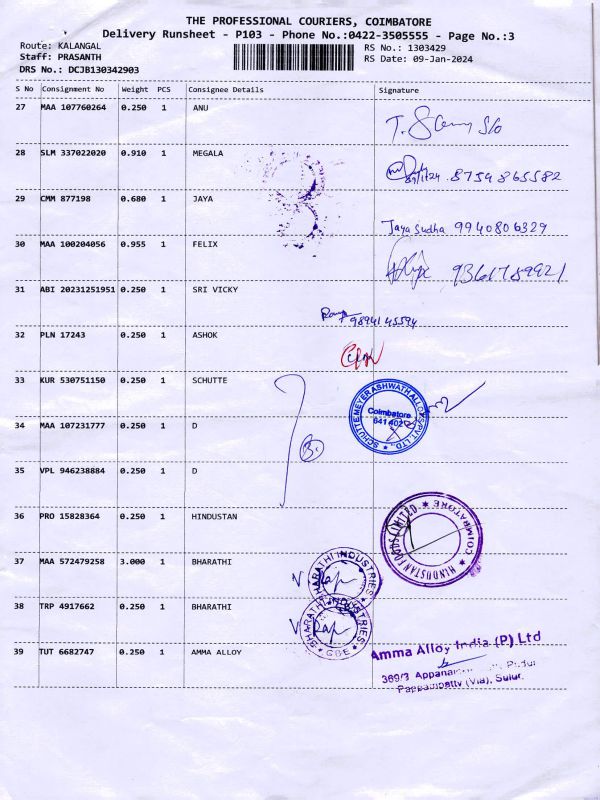 THE PROFESSIONAL COURIERS, COIMBATORE
Delivery Runsheet - P103 - Phone No.:0422-3505555 - Page No.:3
Route: KALANGAL RS No.: 1303429
Staff: PRASANTH RS Date: 09-Jan-2024
DRS No.: DCJB130342903
S No Consignment No Weight PCS Consignee Details Signature
27 MAA 107760264 0.250 1 ANU
S/o
28 SLM 337022020 0.910 1 MEGALA
8754865582
29 CMM 877198 0.680 1 JAYA
Jaya Sudha 9940806329
30 MAA 100204056 0.955 1 FELIX
9361789921
31 ABI 20231251951 0.250 1 SRI VICKY
9894145594
32 PLN 17243 0.250 1 ASHOK
33 KUR 530751150 0.250 1 SCHUTTE
SCHUTTE MEYER ASHWATH ALLOYS PVT. LTD.
Coimbatore
641 402
34 MAA 107231777 0.250 1 D
35 VPL 946238884 0.250 1 D
36 PRO 15828364 0.250 1 HINDUSTAN
HINDUSTAN FOODS LIMITED ★ COIMBATORE ★
37 MAA 572479258 3.000 1 BHARATHI
BHARATHI INDUSTRIES
38 TRP 4917662 0.250 1 BHARATHI
BHARATHI INDUSTRIES
CBE
39 TUT 6682747 0.250 1 AMMA ALLOY
Amma Alloy India (P) Ltd
369/3 Pudur
Pappampatty (Via), Sulur.